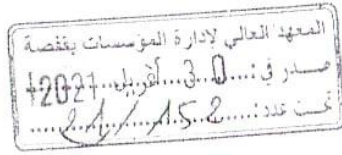 المعهد العالي لإدارة المؤسسات بقفصة
صدر في: 3.0 أفريل 2021
تحت عدد: 21/152